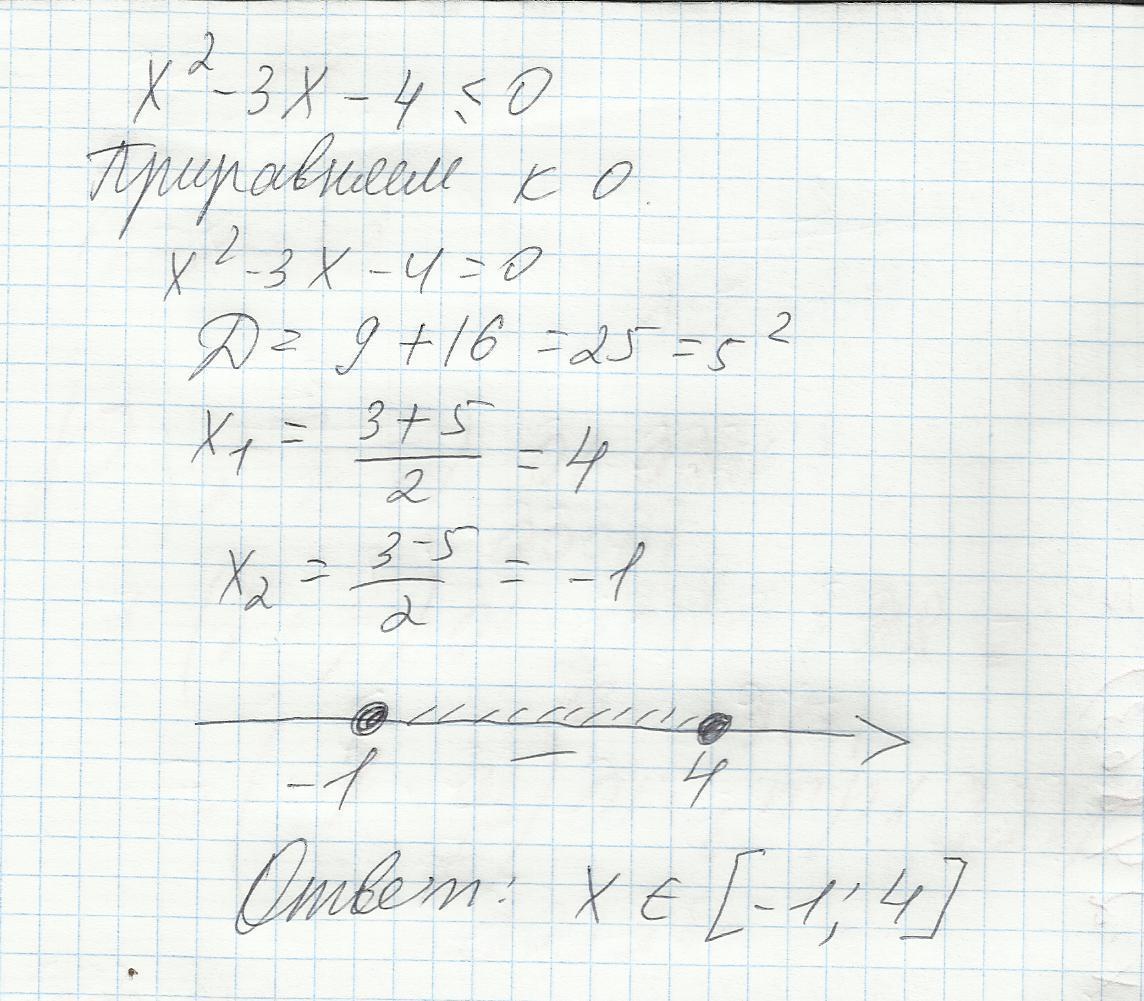 x² - 3x - 4 ≤ 0
Приравняем к 0.
x² - 3x - 4 = 0
D = 9 + 16 = 25 = 5²
x₁ = (3+5)/2 = 4
x₂ = (3-5)/2 = -1
-1 — 4
Ответ: x ∈ [-1; 4]